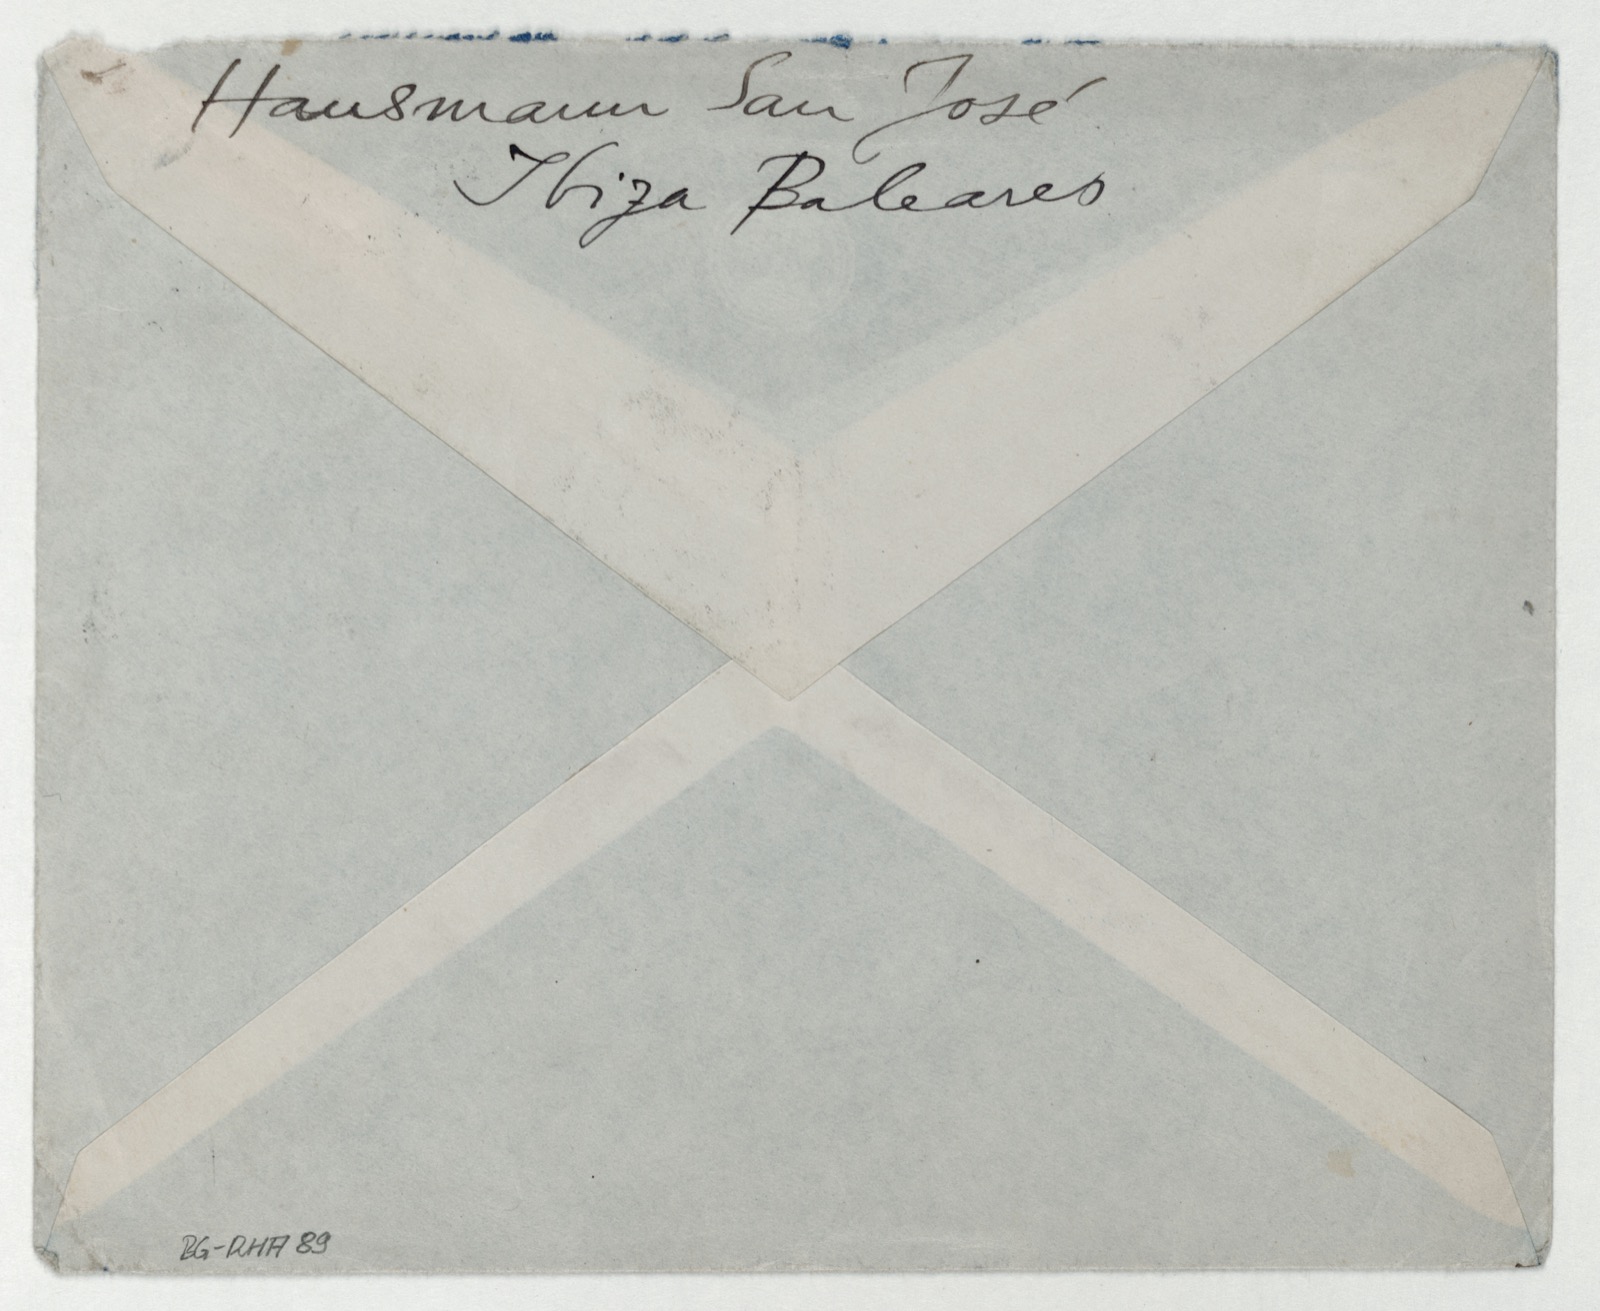 Hausmann San José
Ibiza Baleares
BG-RHA 89